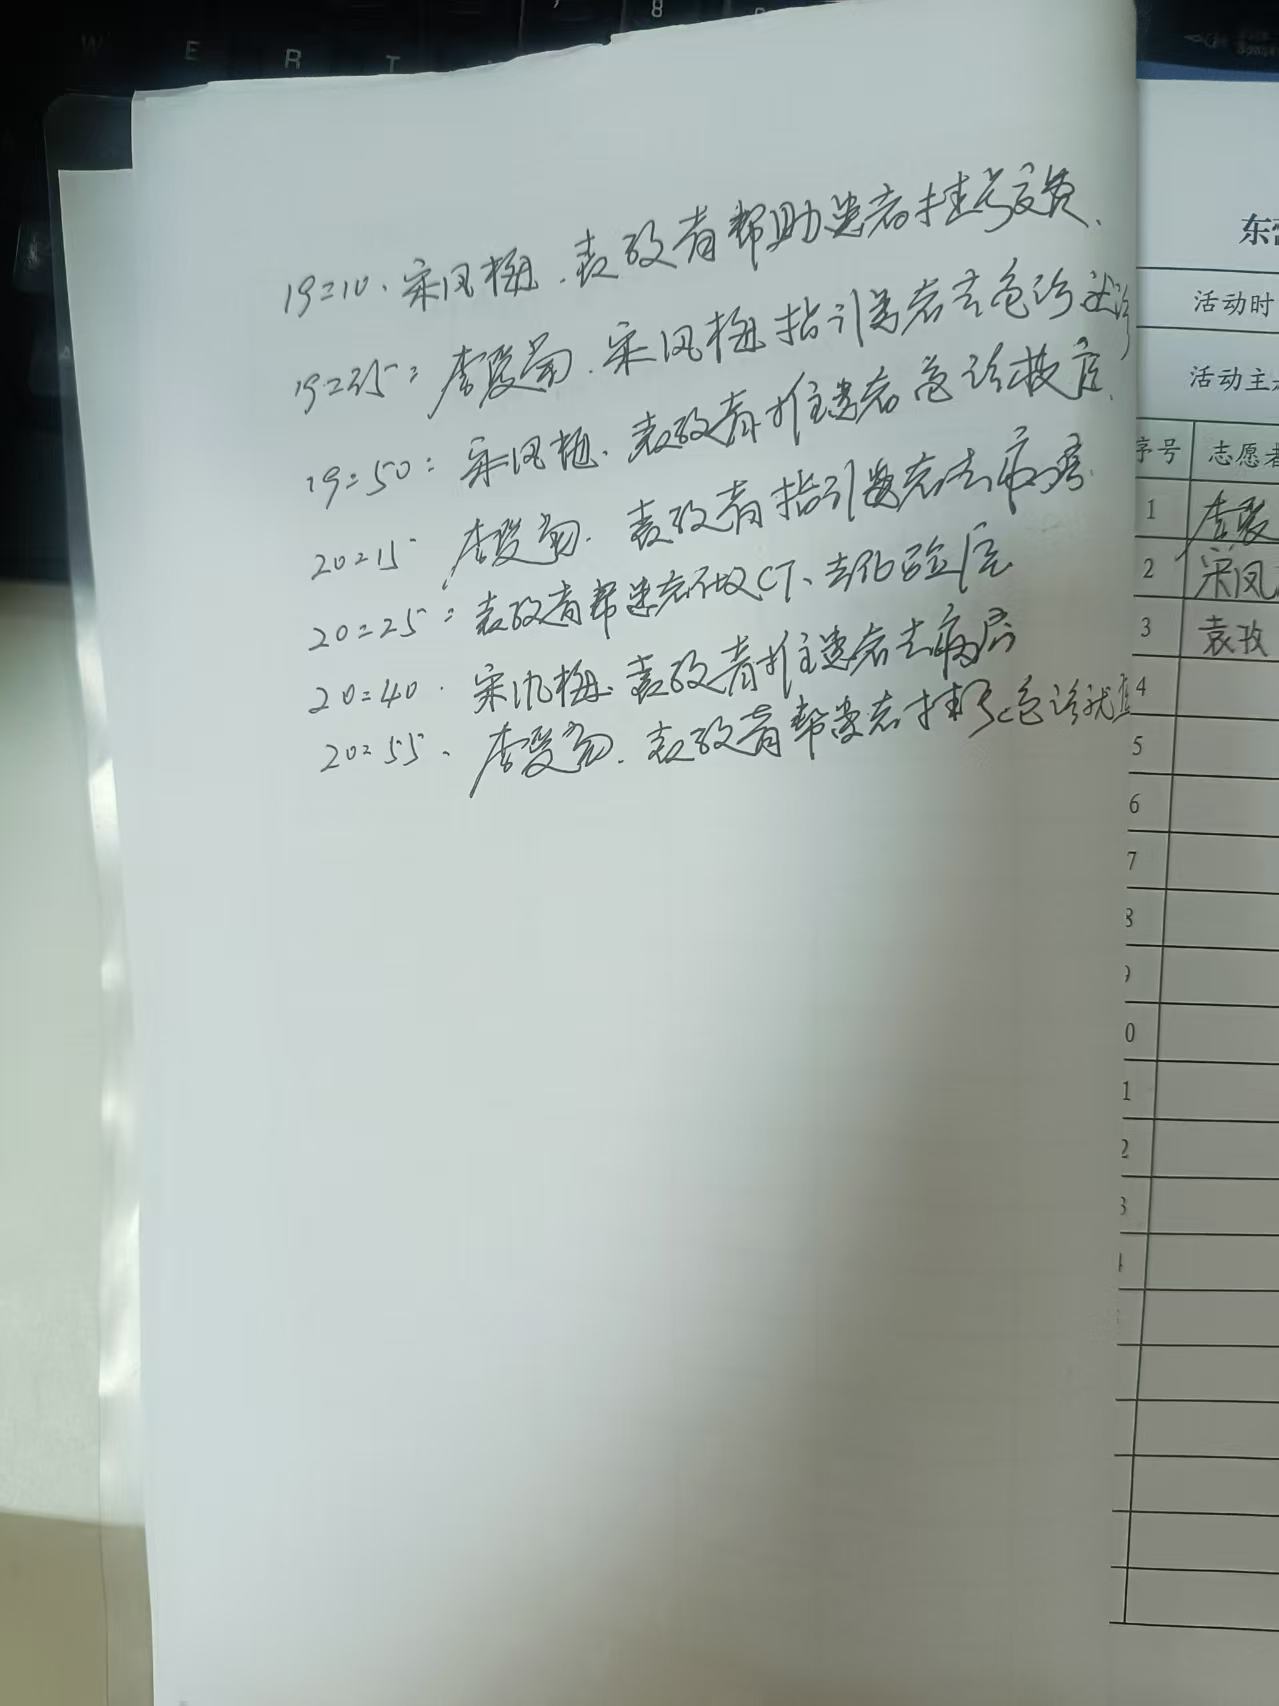 19:10、宋风梅、袁玫青帮助患者挂号交费、
19:35：李爱菊、宋风梅指引患者去急诊就诊
19:50：宋风梅、袁玫青推患者急诊救症
20:15 李爱菊、袁玫青指引患者去病房
20:25：袁玫青帮患者取CT、去化验室
20:40、宋风梅、袁玫青推患者去病房
20:55、李爱菊、袁玫青帮患者挂号急诊就
东
活动时
活动主
序号 志愿者
1 李爱
2 宋风
3 袁玫
4
5
6
7
8
9
0
1
2
3
4
W E R T 8